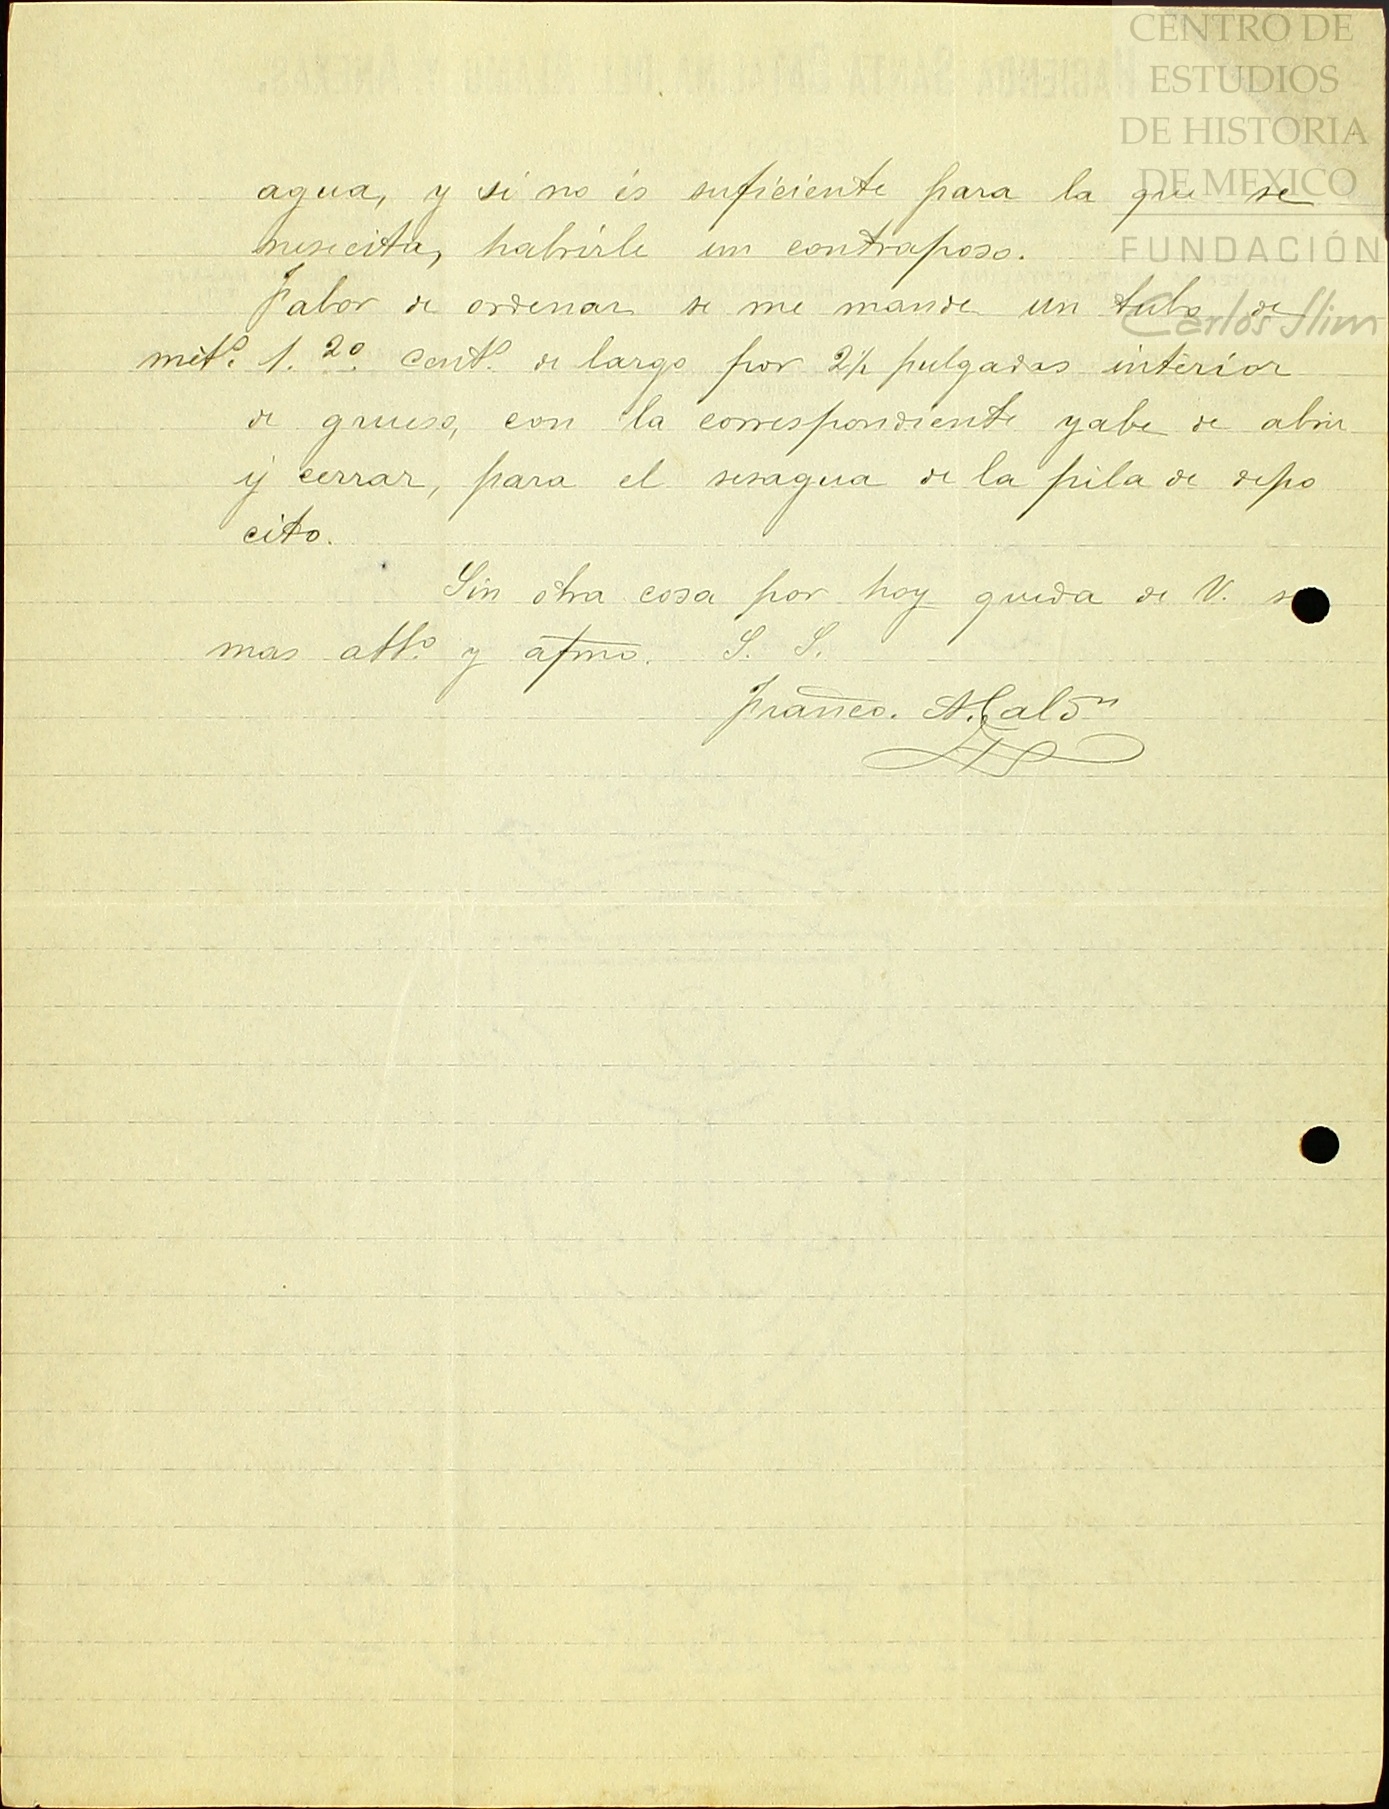 CENTRO DE
ESTUDIOS
DE HISTORIA
DE MEXICO
FUNDACIÓN
Carlos Slim
HACIENDA SANTA CATALINA DEL ALAMO Y ANEXAS.
agua, y si no és suficiente para la que se
nesecita, habrirle un contraposo.
Fabor de ordenar se me mande un tubo de
metº. 1. 20. centº. de largo por 2½ pulgadas interior
de grueso, con la correspondiente yabe de abrir
y cerrar, para el desagua de la pila de depo
cito.
Sin otra cosa por hoy queda de V. su
mas attº. y afmo. S. S.
Franco. A. Caldn